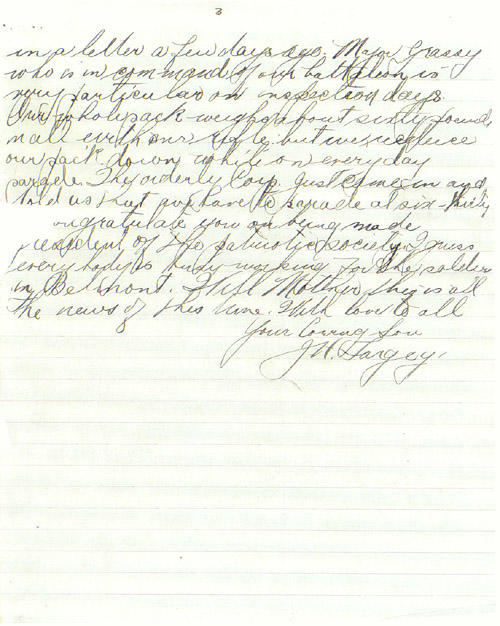 3
in a letter a few days ago. Major Grassy
who is in command of our battalion is
very particular on inspection days.
Our whole pack weighs about sixty pounds,
in all with our rifle, but we reduce
our pack down while on every day
parade. The orderly Corp. just came in and
told us that we have to parade at six-thirty
ongratulate you on being made
resident of the patriotic society. I guess
everybody is busy working for the soldiers
in Belmont. Well Mother this is all
the news of this time. With love to all
Your loving Son
J.H. Hargey.